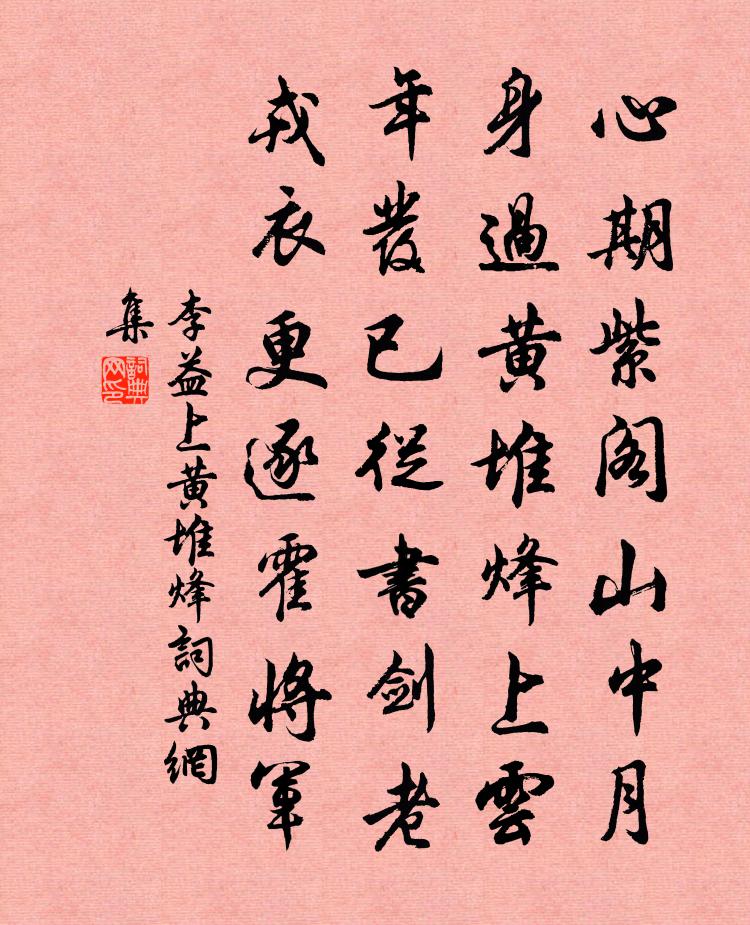 心期紫阁山中月
身過黄堆烽上雲
年發已從書劍老
戎衣更逐霍將軍
李益上黄堆烽詞典網
集
詞典
网印